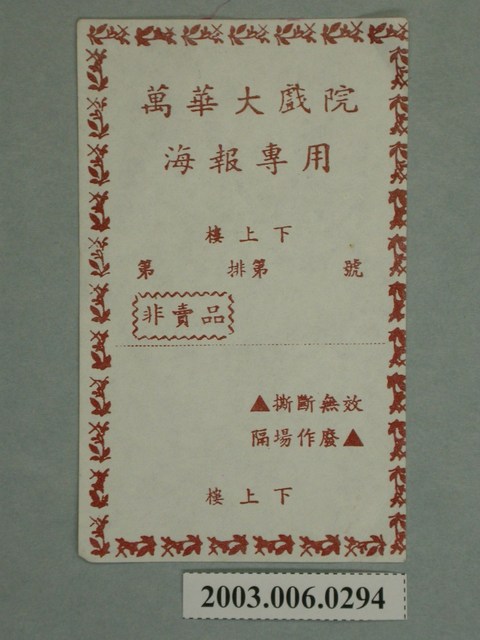 萬華大戲院
海報專用
樓上下
第 排第 號
非賣品
▲撕斷無效
隔場作廢▲
樓上下
2003.006.0294